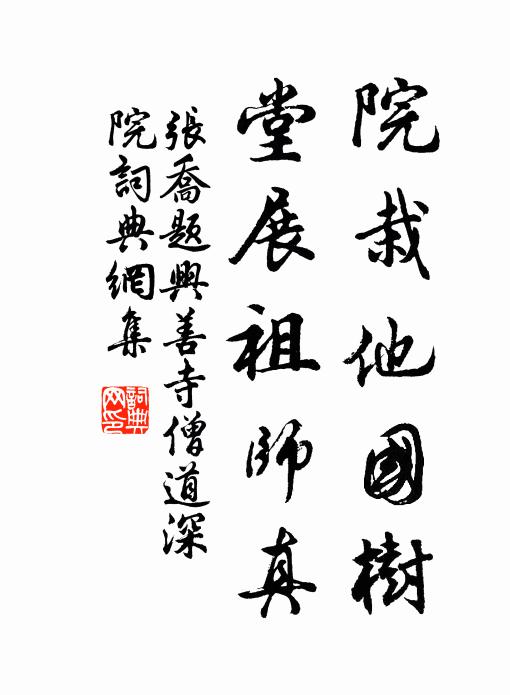 院栽他國樹
堂展祖師真
張喬題興善寺僧道深
院詞典網集
詞典
网印